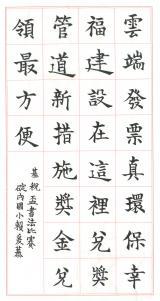 雲端發票真環保幸
福建設在這裡兌獎
管道新措施獎金兌
領最方便
基稅盃書法比賽
碇內國小賴